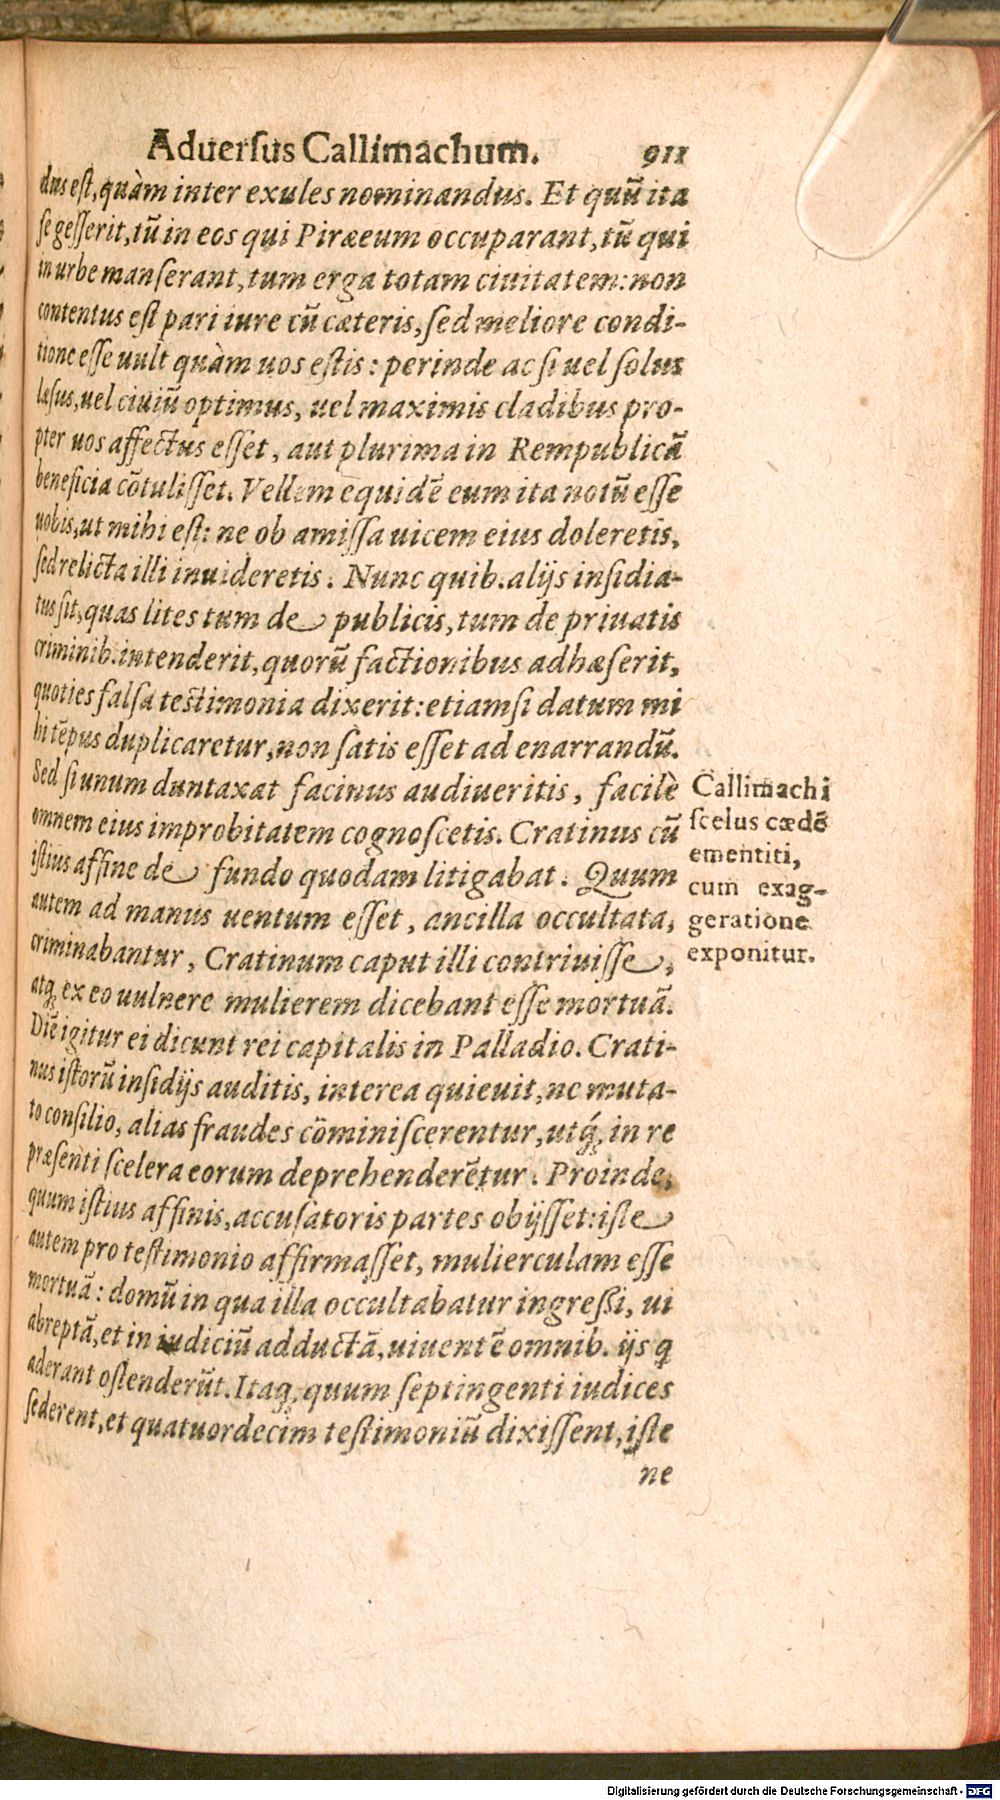 Aduerſus Callimachum. 911
dus eſt, quàm inter exules nominandus. Et quū ita
ſe geſſerit, tū in eos qui Piræeum occuparant, tū qui
in urbe manſerant, tum erga totam ciuitatem: non
contentus eſt pari iure cū cæteris, ſed meliore condi-
tione eſſe uult quàm uos eſtis: perinde ac ſi uel ſolus
læſus, uel ciuiū optimus, uel maximis cladibus pro-
pter uos affectus eſſet, aut plurima in Rempublicā
beneficia cōtuliſſet. Vellem equidē eum ita notū eſſe
uobis, ut mihi eſt: ne ob amiſſa uicem eius doleretis,
ſed relicta illi inuideretis. Nunc quib. alijs inſidia-
tus ſit, quas lites tum de publicis, tum de priuatis
criminib. intenderit, quorū factionibus adhæſerit,
quoties falſa teſtimonia dixerit: etiamſi datum mi
hi tēpus duplicaretur, non ſatis eſſet ad enarrandū.
Sed ſi unum duntaxat facinus audiueritis, facilè
omnem eius improbitatem cognoſcetis. Cratinus cū
iſtius affine de fundo quodam litigabat. Quum
autem ad manus uentum eſſet, ancilla occultata,
criminabantur, Cratinum caput illi contriuiſſe,
atq; ex eo uulnere mulierem dicebant eſſe mortuā.
Diē igitur ei dicunt rei capitalis in Palladio. Crati-
nus iſtorū inſidijs auditis, interea quieuit, ne muta-
to conſilio, alias fraudes cōminiſcerentur, utq́;, in re
præſenti ſcelera eorum deprehenderētur. Proinde,
quum iſtius affinis, accuſatoris partes obijſſet: iſte
autem pro teſtimonio affirmaſſet, mulierculam eſſe
mortuā: domū in qua illa occultabatur ingreßi, ui
abreptā, et in iudiciū adductā, uiuentē omnib. ijs q
aderant oſtenderūt. Itaq;, quum ſeptingenti iudices
ſederent, et quatuordecim teſtimoniū dixiſſent, iſte
ne
Callimachi
ſcelus cædē
ementiti,
cum exag-
geratione
exponitur.
Digitalisierung gefördert durch die Deutsche Forschungsgemeinschaft - DFG